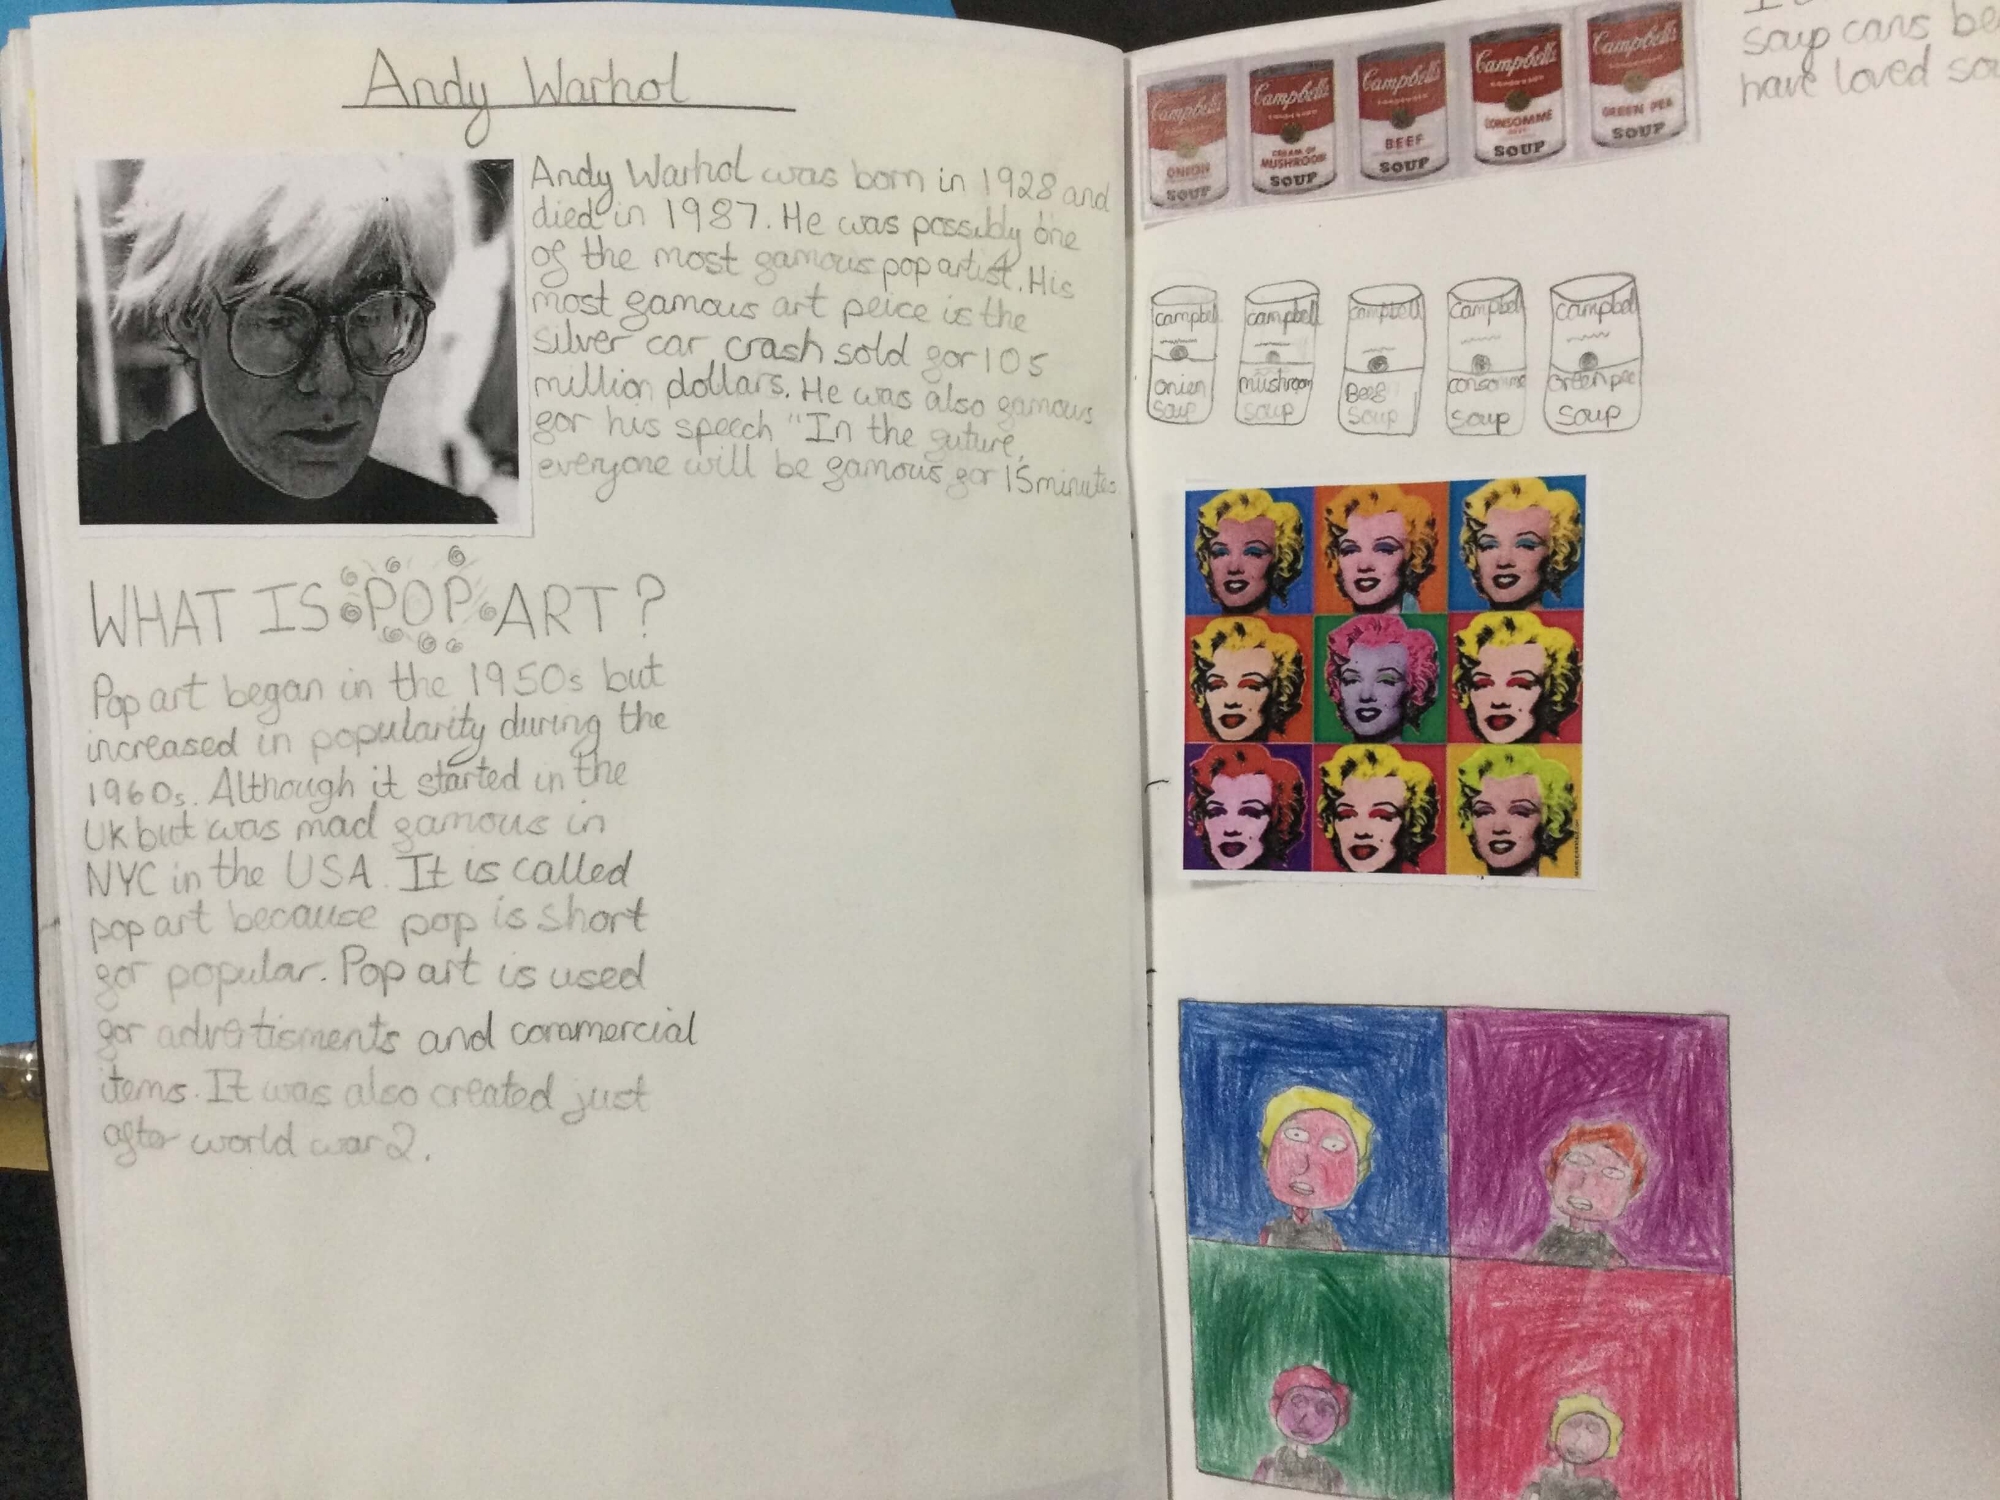 Andy Warhol
Andy Warhol was born in 1928 and
died in 1987. He was possibly one
of the most famous pop artist. His
most famous art peice is the
silver car crash sold for 105
million dollars. He was also famous
for his speech "In the future,
everyone will be famous for 15 minutes
WHAT IS POP ART?
Pop art began in the 1950s but
increased in popularity during the
1960s. Although it started in the
UK but was mad famous in
NYC in the USA. It is called
pop art because pop is short
for popular. Pop art is used
for advertisments and commercial
items. It was also created just
after world war 2.
Campbell's Campbell's Campbell's Campbell's Campbell's
ONION CREAM OF MUSHROOM BEEF CONSOMME GREEN PEA
SOUP SOUP SOUP SOUP SOUP
soup cans be
have loved so
campbell campbell campbell Campbell campbell
onion mushroom Beef consomme Green pea
soup soup soup soup soup